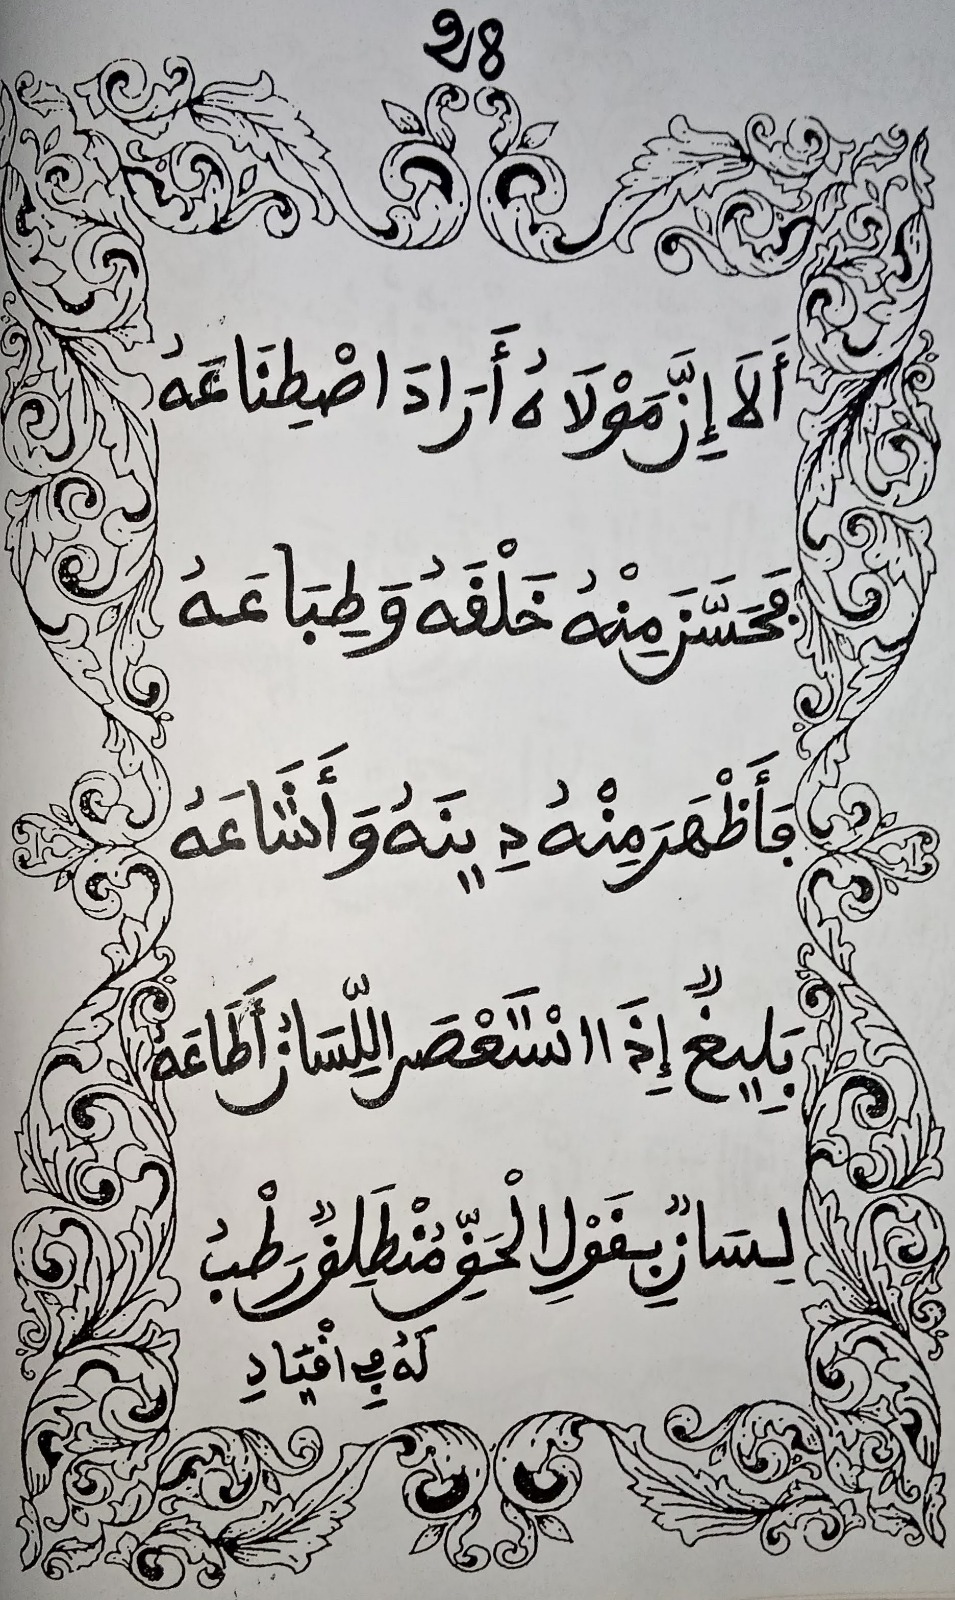 28
أَلَا إِنَّ مَوْلَاهُ أَرَادَ اصْطِنَاعَهُ
فَحَسَّنَ مِنْهُ خَلْقَهُ وَطِبَاعَهُ
فَأَظْهَرَ مِنْهُ دِينَهُ وَأَشَاعَهُ
بَلِيغٌ إِذَا اسْتَعْصَى اللِّسَانُ أَطَاعَهُ
لِسَانٌ بِقَوْلِ الْحَقِّ مُنْطَلِقٌ رَطْبُ
لَهُ فِي اقْتِيَادِ